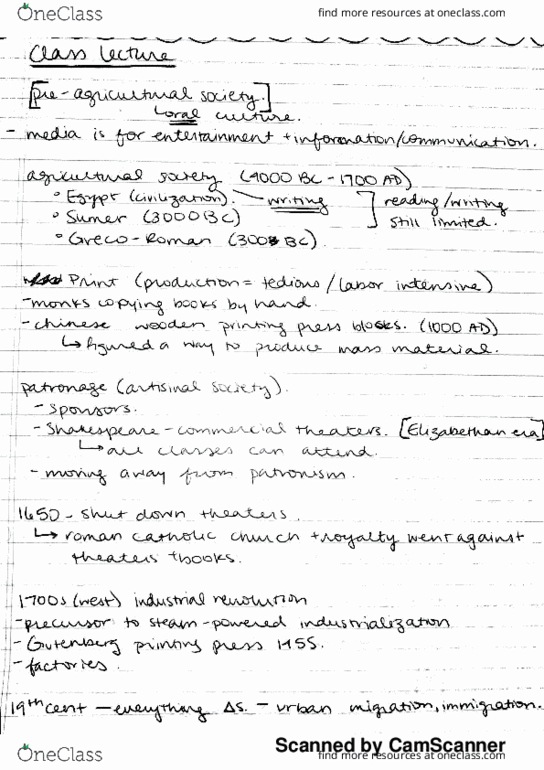 OneClass
find more resources at oneclass.com
Class Lecture
[pre-agricultural society.]
↳oral culture.
- media is for entertainment + information/communication.
agricultural society (4000 BC - 1700 AD)
° Egypt (civilization). — writing ] reading/writing
° Sumer (3000 BC) still limited.
° Greco-Roman (300 BC).
Print (production = tedious / labor intensive)
- monks copying books by hand.
- chinese wooden printing press blocks. (1000 AD)
↳ figured a way to produce mass material.
patronage (artisinal society).
- sponsors.
- Shakespeare - commercial theaters. [Elizabethan era]
↳ all classes can attend.
- moving away from patronism.
1650 - shut down theaters.
↳ roman catholic church + royalty went against
theaters + books.
1700s (west) industrial revolution
- precursor to steam-powered industrialization
- Gutenberg printing press 1455.
- factories.
19th cent — everything Δs. — urban migration, immigration.
Scanned by CamScanner
OneClass
find more resources at oneclass.com